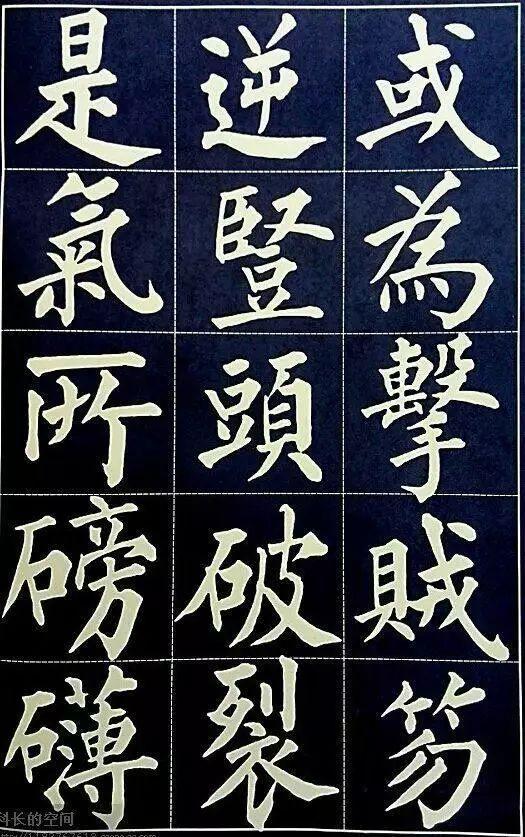 或為擊賊笏
逆豎頭破裂
是氣所磅礴
科长的空间